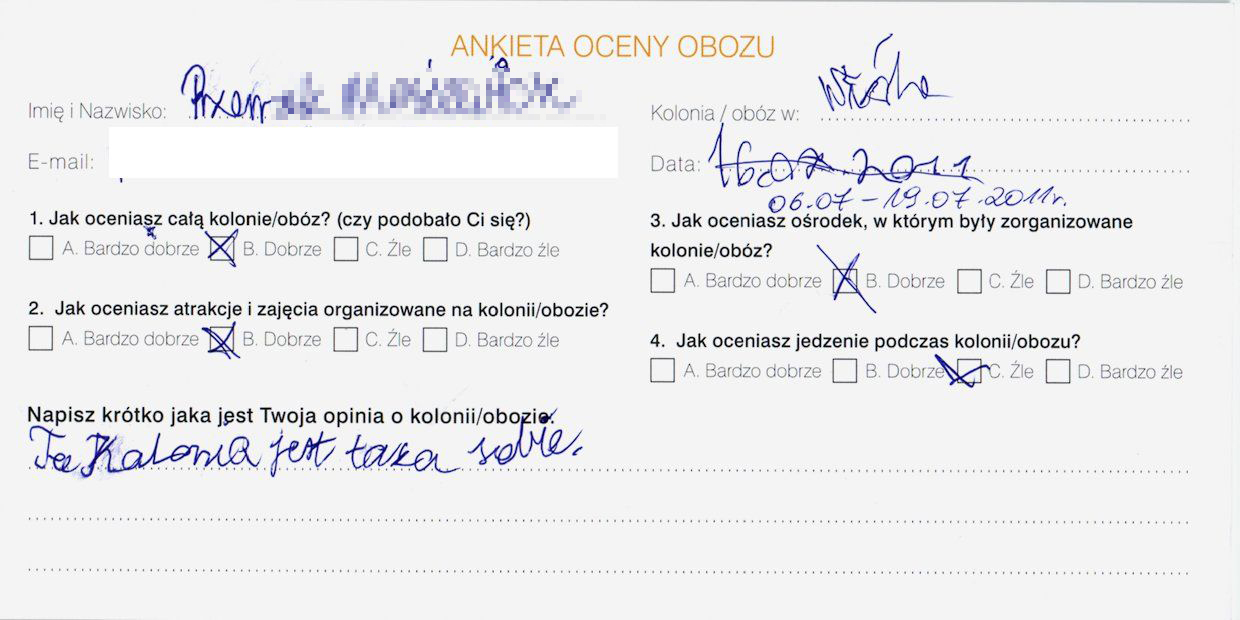 ANKIETA OCENY OBOZU
Imię i Nazwisko:
Kolonia / obóz w:
E-mail:
Data: 16.07.2011
06.07 – 19.07.2011r.
1. Jak oceniasz całą kolonie/obóz? (czy podobało Ci się?)
A. Bardzo dobrze B. Dobrze C. Źle D. Bardzo źle
2. Jak oceniasz atrakcje i zajęcia organizowane na kolonii/obozie?
A. Bardzo dobrze B. Dobrze C. Źle D. Bardzo źle
3. Jak oceniasz ośrodek, w którym były zorganizowane
kolonie/obóz?
A. Bardzo dobrze B. Dobrze C. Źle D. Bardzo źle
4. Jak oceniasz jedzenie podczas kolonii/obozu?
A. Bardzo dobrze B. Dobrze C. Źle D. Bardzo źle
Napisz krótko jaka jest Twoja opinia o kolonii/obozie.
Ta Kalonia jest taka sobie.